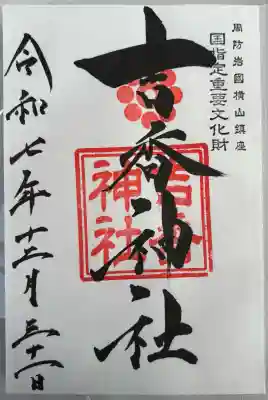 周防岩國横山鎮座
国指定重要文化財
吉香神社
吉香神社
令和七年十二月三十一日